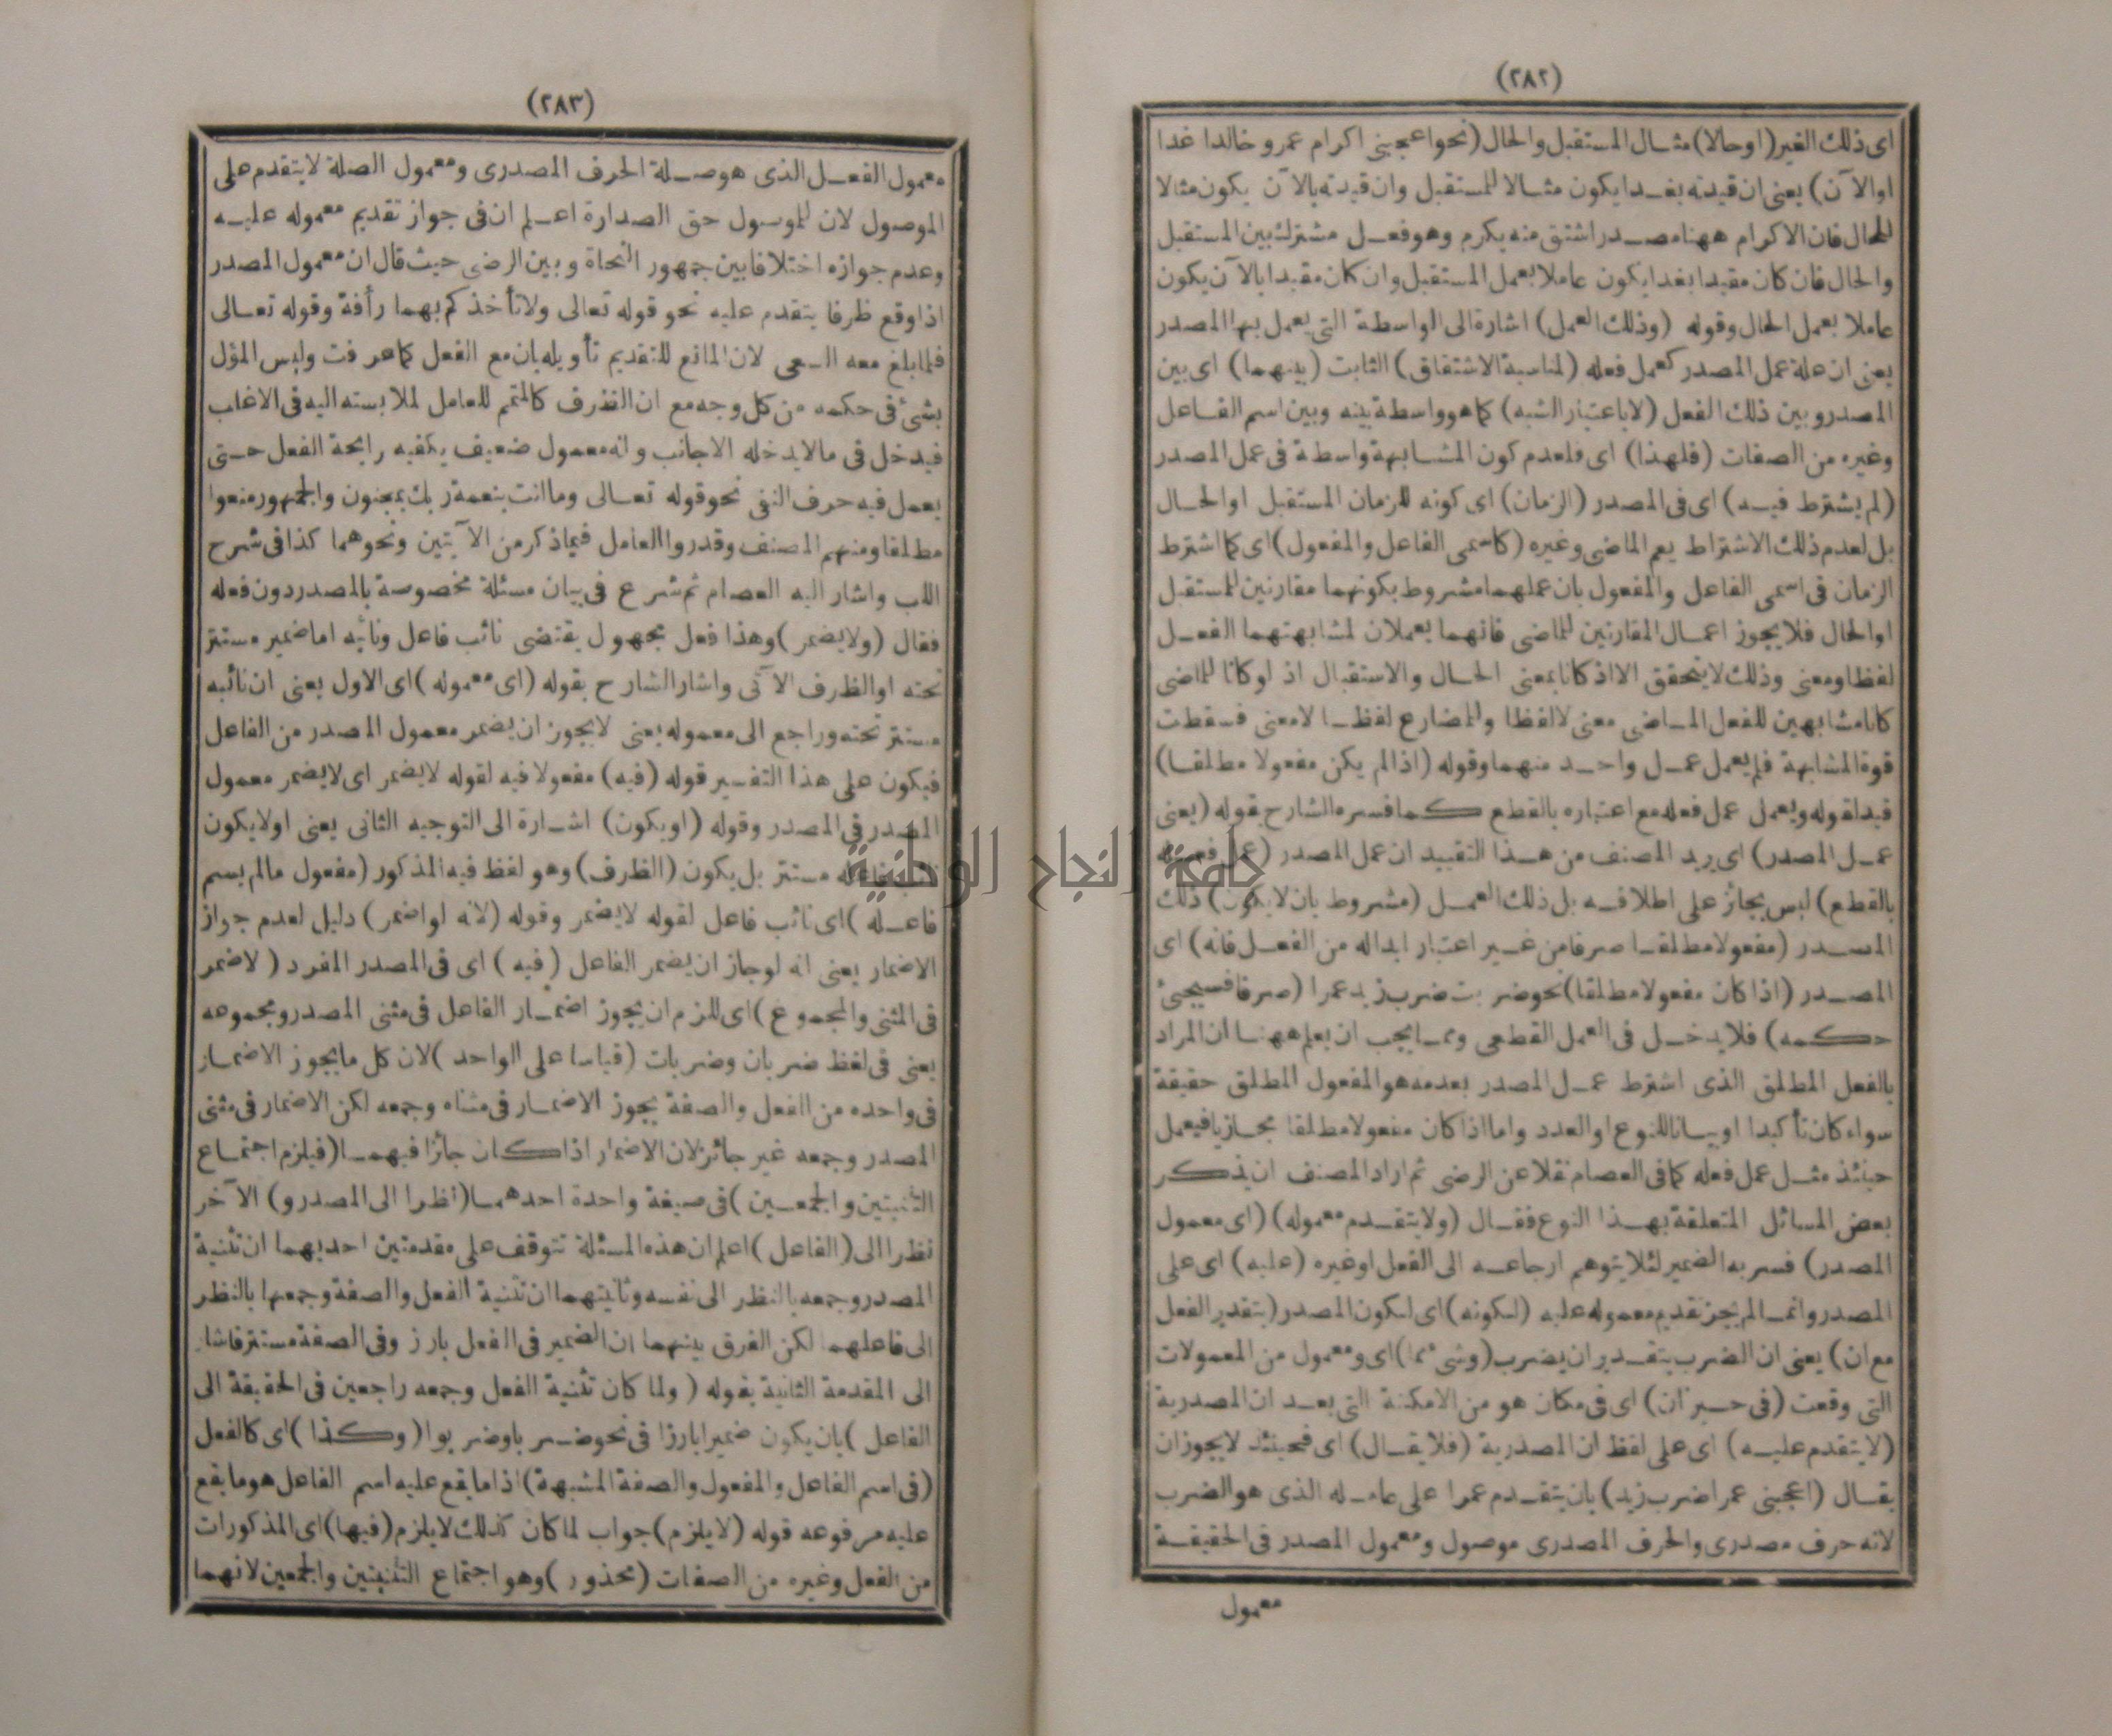 (٢٨٢)
اى ذلك الغير (او حالا) مثال المستقبل والحال (نحو اعجبنى اكرام عمرو خالدا غدا
او الآن) يعنى ان قيدته بغدا يكون مثالا للمستقبل وان قيدته بالآن يكون مثالا
للحال فان الاكرام ههنا مصدر اشتق منه يكرم وهو فعل مشترك بين المستقبل
والحال فان كان مقيدا بغدا يكون عاملا بعمل المستقبل وان كان مقيدا بالآن يكون
عاملا بعمل الحال وقوله (وذلك العمل) اشارة الى الواسطة التى يعمل بها المصدر
يعنى ان علة عمل المصدر كعمل فعله (لمناسبة الاشتقاق) الثابت (بينهما) اى بين
المصدر وبين ذلك الفعل (لا باعتبار الشبه) كما هو واسطة بينه وبين اسم الفاعل
وغيره من الصفات (فلهذا) اى فلعدم كون المشابهة واسطة فى عمل المصدر
(لم يشترط فيه) اى فى المصدر (الزمان) اى كونه للزمان المستقبل او الحال
بل لعدم ذلك الاشتراط يعم الماضى وغيره (كاسمى الفاعل والمفعول) اى كما اشترط
الزمان فى اسمى الفاعل والمفعول بان عملهما مشروط بكونهما مقارنين للمستقبل
او الحال فلا يجوز اعمال المقارنين للماضى فانهما يعملان لمشابهتهما الفعل
لفظا ومعنى وذلك لا يتحقق الا اذ كانا بمعنى الحال والاستقبال اذ لو كانا للماضى
كانا مشابهين للفعل الماضى معنى لا لفظا وللمضارع لفظا لا معنى فسقطت
قوة المشابهة فلم يعمل عمل واحد منهما وقوله (اذا لم يكن مفعولا مطلقا)
قيد لقوله ويعمل عمل فعله مع اعتباره بالقطع كما فسره الشارح بقوله (يعنى
عمل المصدر) اى يريد المصنف من هذا التقييد ان عمل المصدر (عمل فعله
بالقطع) ليس بجائز على اطلاقه بل ذلك العمل (مشروط بان لا يكون) ذلك
المصدر (مفعولا مطلقا صرفا من غير اعتبار ابداله من الفعل فانه) اى
المصدر (اذا كان مفعولا مطلقا) نحو ضربت ضرب زيد عمرا (صرفا فسيجئ
حكمه) فلا يدخل فى العمل القطعى ومما يجب ان يعلم ههنا ان المراد
بالفعل المطلق الذى اشترط عمل المصدر بعدمه هو المفعول المطلق حقيقة
سواء كان تأكيدا او بيانا للنوع او العدد واما اذا كان مفعولا مطلقا مجازيا فيعمل
حينئذ مثل عمل فعله كما فى العصام نقلا عن الرضى ثم اراد المصنف ان يذكر
بعض المسائل المتعلقة بهذا النوع فقال (ولا يتقدم معموله) (اى معمول
المصدر) فسر به الضمير لئلا يتوهم ارجاعه الى الفعل او غيره (عليه) اى على
المصدر وانما لم يجز تقديم معموله عليه (لكونه) اى لكون المصدر (بتقدير الفعل
مع ان) يعنى ان الضرب بتقدير ان يضرب (وشئ مما) اى ومعمول من المعمولات
التى وقعت (فى حيز ان) اى فى مكان هو من الامكنة التى بعد ان المصدرية
(لا يتقدم عليه) اى على لفظ ان المصدرية (فلا يقال) اى فحينئذ لا يجوز ان
يقال (اعجبنى عمرا ضرب زيد) بان يتقدم عمرا على عامله الذى هو الضرب
لانه حرف مصدرى والحرف المصدرى موصول ومعمول المصدر فى الحقيقة
معمول
(٢٨٣)
معمول الفعل الذى هو صلة الحرف المصدرى ومعمول الصلة لا يتقدم على
الموصول لان للموسول حق الصدارة اعلم ان فى جواز تقديم معموله عليه
وعدم جوازه اختلافا بين جمهور النحاة وبين الرضى حيث قال ان معمول المصدر
اذا وقع ظرفا يتقدم عليه نحو قوله تعالى ولا تأخذكم بهما رأفة وقوله تعالى
فلما بلغ معه السعى لان المانع للتقديم تأويله بان مع الفعل كما عرفت وليس المؤل
بشئ فى حكمه من كل وجه مع ان الظرف كالمتمم للعامل لملابسته اليه فى الاغلب
فيدخل فى مالا يدخله الاجانب وانه معمول ضعيف يكفيه رايحة الفعل حتى
يعمل فيه حرف النفى نحو قوله تعالى وما انت بنعمة ربك بمجنون والجمهور منعوا
مطلقا ومنهم المصنف وقدروا العامل فيما ذكر من الآيتين ونحوهما كذا فى شرح
اللب واشار اليه العصام ثم شرع فى بيان مسئلة مخصوصة بالمصدر دون فعله
فقال (ولا يضمر) وهذا فعل مجهول يقتضى نائب فاعل ونائبه اما ضمير مستتر
تحته او الظرف الآتى واشار الشارح بقوله (اى معموله) اى الاول يعنى ان نائبه
مستتر تحته وراجع الى معموله يعنى لا يجوز ان يضمر معمول المصدر من الفاعل
فيكون على هذا التفسير قوله (فيه) مفعولا فيه لقوله لا يضمر اى لا يضمر معمول
المصدر فى المصدر وقوله (او يكون) اشارة الى التوجيه الثانى يعنى او لا يكون
نائب فاعله مستتر بل يكون (الظرف) وهو لفظ فيه المذكور (مفعول مالم يسم
فاعله) اى نائب فاعل لقوله لا يضمر وقوله (لانه لو اضمر) دليل لعدم جواز
الاضمار يعنى انه لو جاز ان يضمر الفاعل (فيه) اى فى المصدر المفرد (لاضمر
فى المثنى والمجموع) اى للزم ان يجوز اضمار الفاعل فى مثنى المصدر ومجموعه
يعنى فى لفظ ضربان وضربات (قياسا على الواحد) لان كل ما يجوز الاضمار
فى واحده من الفعل والصفة يجوز الاضمار فى مثناه وجمعه لكن الاضمار فى مثنى
المصدر وجمعه غير جائز لان الاضمار اذا كان جائزا فيهما (فيلزم اجتماع
التثنيتين والجمعين) فى صيغة واحدة احدهما (نظرا الى المصدر و) الآخر
نظرا الى (الفاعل) اعلم ان هذه المسئلة تتوقف على مقدمتين احديهما ان تثنية
المصدر وجمعه بالنظر الى نفسه وثانيتهما ان تثنية الفعل والصفة وجمعها بالنظر
الى فاعلهما لكن الفرق بينهما ان الضمير فى الفعل بارز وفى الصفة مستتر فاشار
الى المقدمة الثانية بقوله (ولما كان تثنية الفعل وجمعه راجعين فى الحقيقة الى
الفاعل) بان يكون ضميرا بارزا فى نحو ضربا وضربوا (وكذا) اى كالفعل
(فى اسم الفاعل والمفعول والصفة المشبهة) اذ ما يقع عليه اسم الفاعل هو ما يقع
عليه مرفوعه قوله (لا يلزم) جواب لما كان كذلك لا يلزم (فيها) اى المذكورات
من الفعل وغيره من الصفات (محذور) وهو اجتماع التثنيتين والجمعين لانهما
جامعة النجاح الوطنية